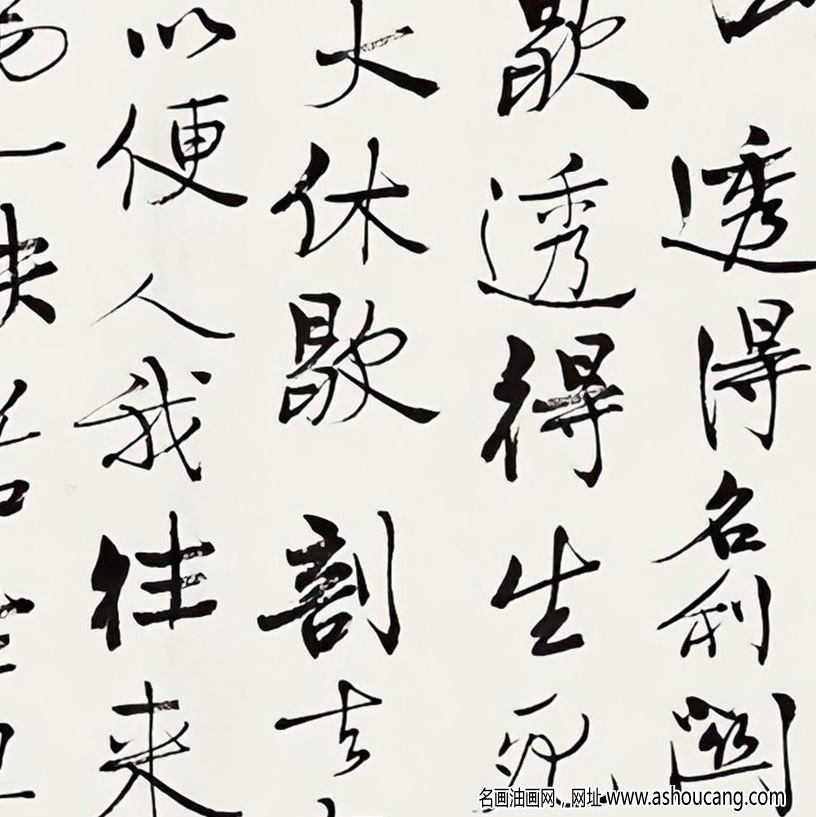 透得名利關
歇透得生死
大休歇割去
以便人我往来
名画油画网，网址 www.ashoucang.com